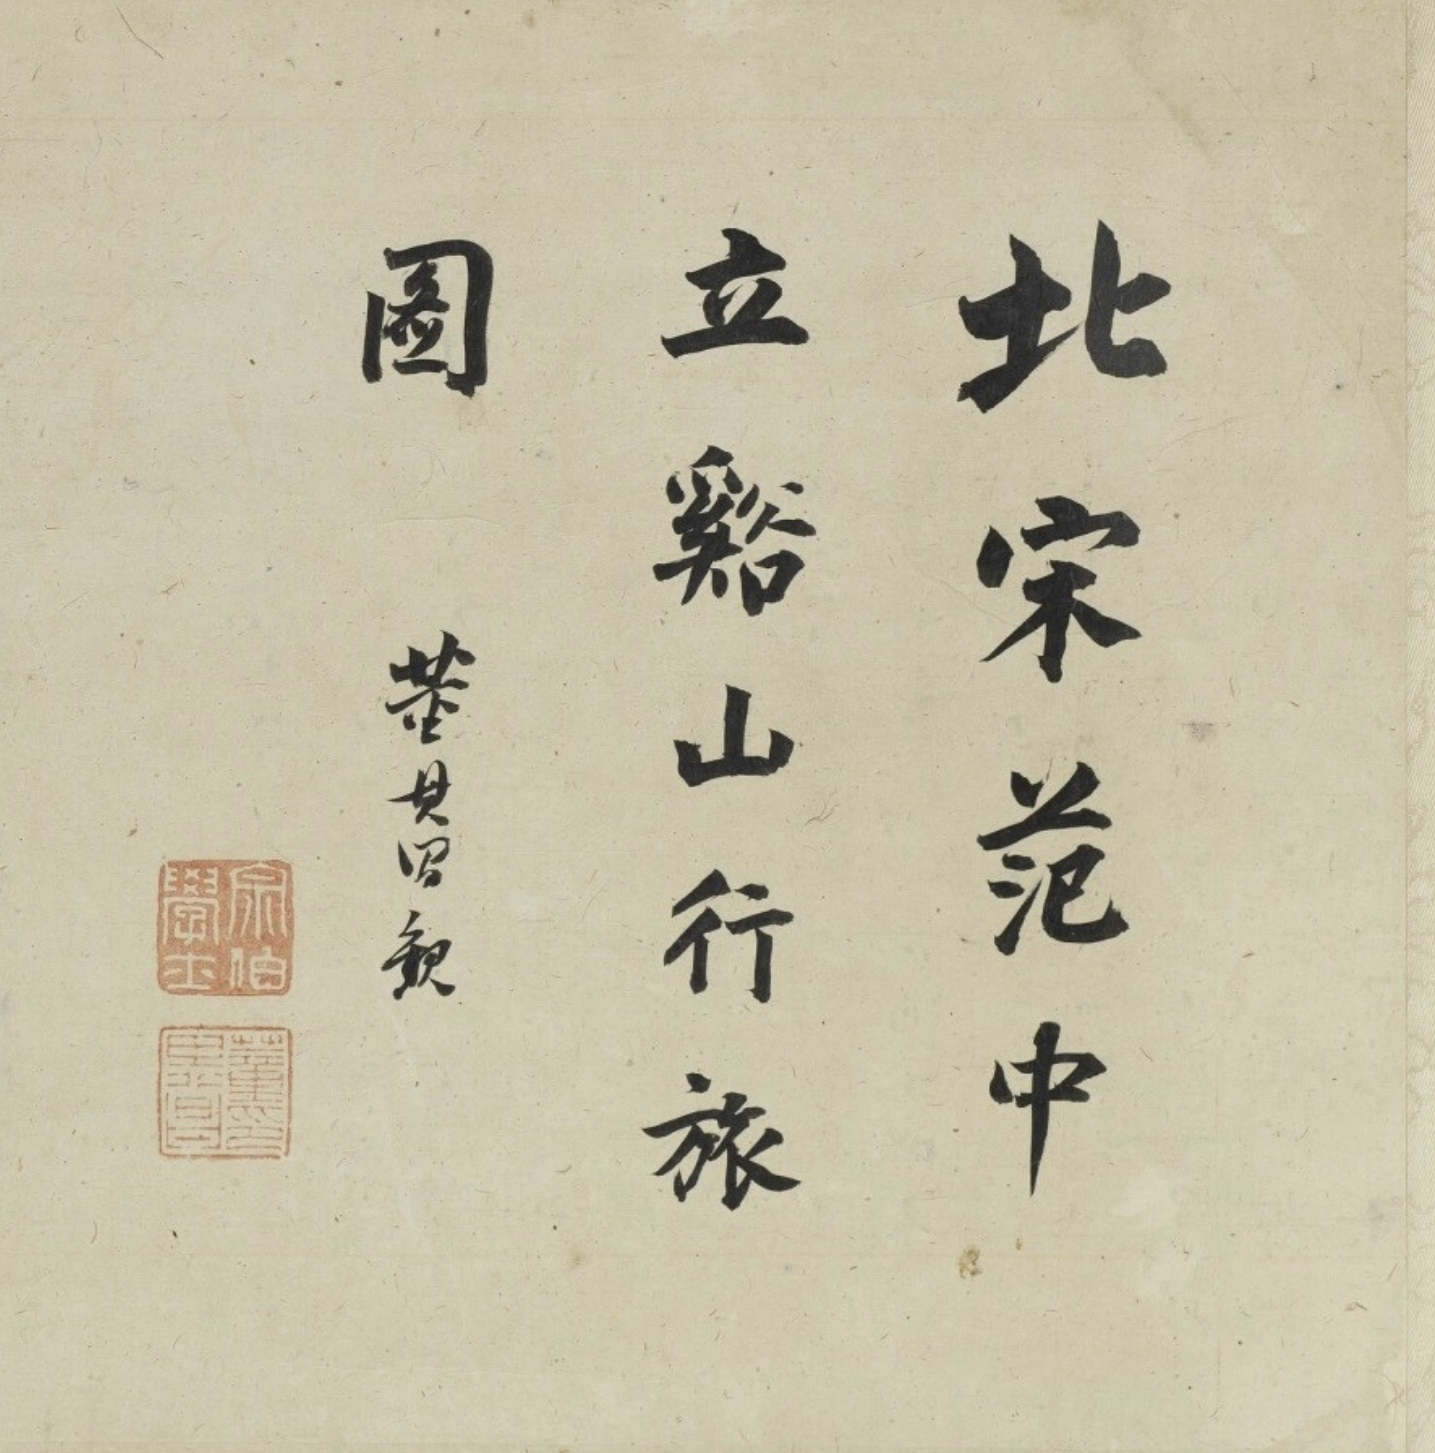 北宋范中
立谿山行旅
圖
董其昌觀
宗伯學士
董氏玄宰